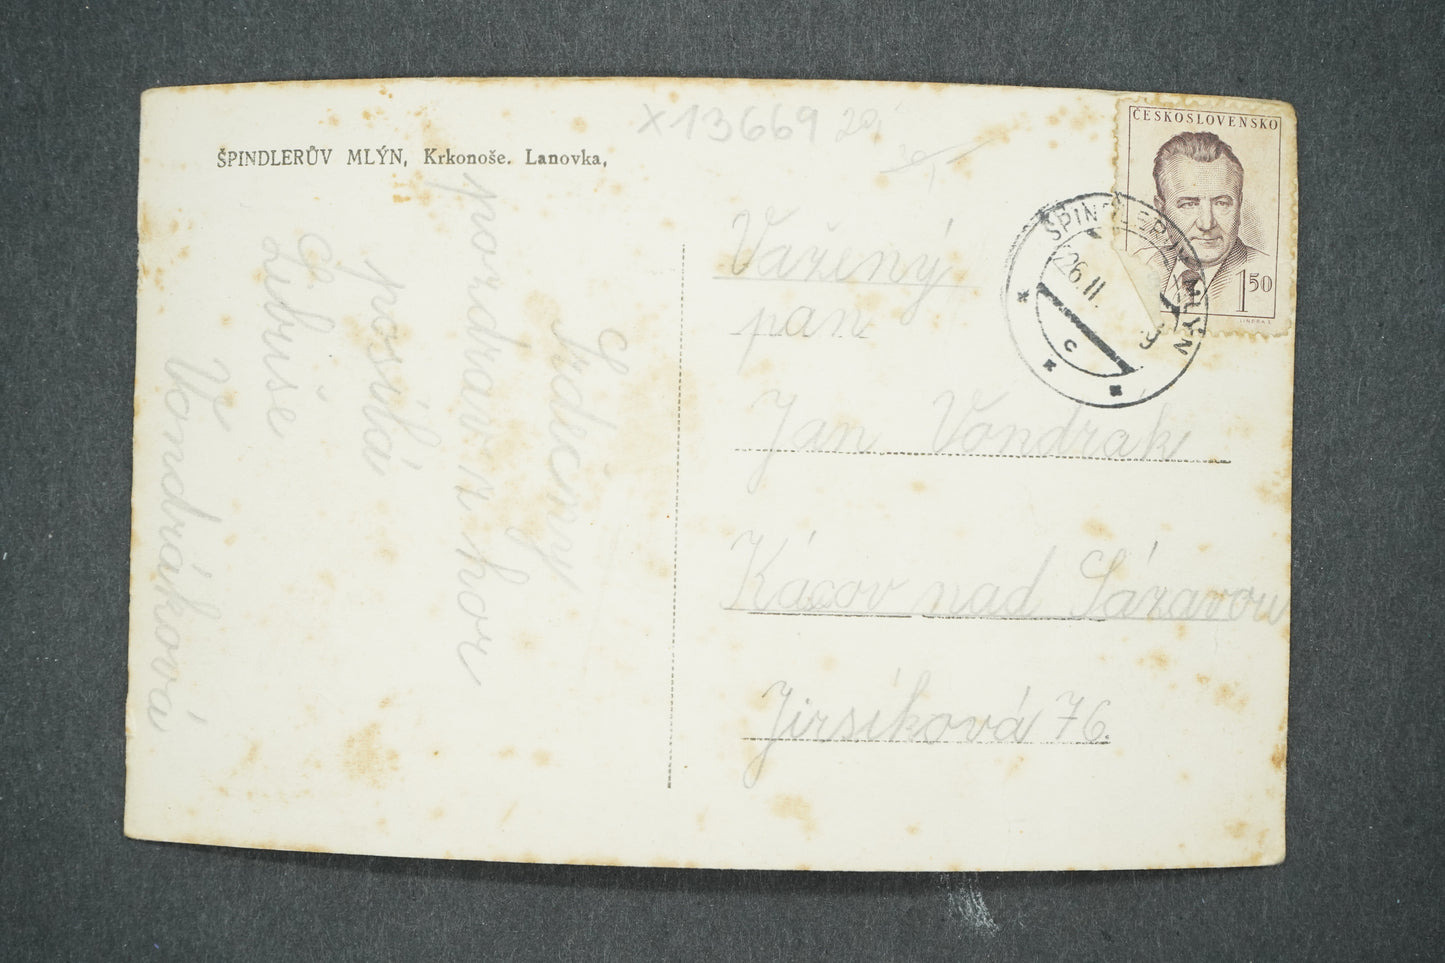 x 13669 20,
ŠPINDLERŮV MLÝN, Krkonoše. Lanovka.
Srdečný
pozdrav z hor
posílá
Libuše
Vondráková
ČESKOSLOVENSKO
1 50
ŠPINDLERŮV MLÝN
26.II.
9
c
Vážený
pan
Jan Vondrak
Kácov nad Sázavou
Jirsíková 76.